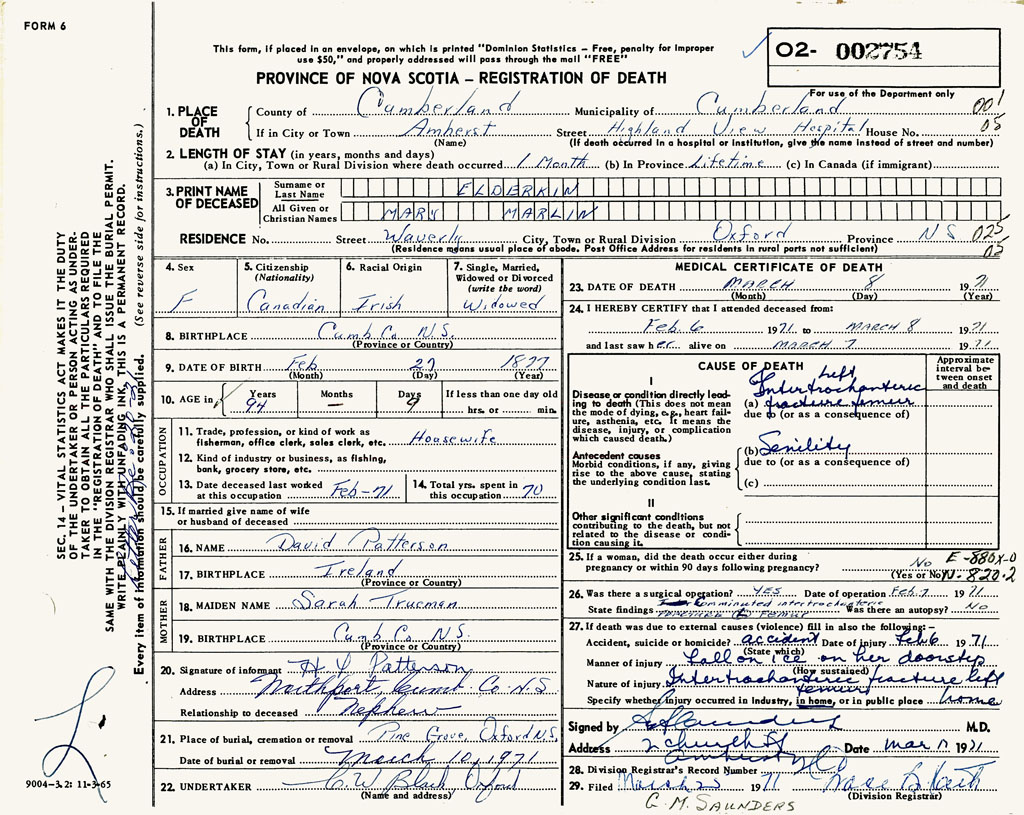 FORM 6
This form, if placed in an envelope, on which is printed "Dominion Statistics – Free, penalty for improper
use $50," and properly addressed will pass through the mail "FREE"
O2- 002754
PROVINCE OF NOVA SCOTIA – REGISTRATION OF DEATH
For use of the Department only
001
05
1. PLACE OF DEATH
County of Cumberland Municipality of Cumberland
If in City or Town Amherst Street Highland View Hospital House No.
(Name) (If death occurred in a hospital or institution, give the name instead of street and number)
2. LENGTH OF STAY (in years, months and days)
(a) In City, Town or Rural Division where death occurred 1 Month (b) In Province Lifetime (c) In Canada (if immigrant)
3. PRINT NAME OF DECEASED
Surname or Last Name ELDERKIN
All Given or Christian Names MARY MARLIN
RESIDENCE No. Street Waverly City, Town or Rural Division Oxford Province NS
025
02
(Residence means usual place of abode. Post Office Address for residents in rural parts not sufficient)
4. Sex
F
5. Citizenship
(Nationality)
Canadian
6. Racial Origin
Irish
7. Single, Married,
Widowed or Divorced
(write the word)
Widowed
8. BIRTHPLACE Cumb Co. N.S.
(Province or Country)
9. DATE OF BIRTH Feb 27 1877
(Month) (Day) (Year)
10. AGE in Years Months Days If less than one day old
94 – 9 hrs. or min.
OCCUPATION
11. Trade, profession, or kind of work as
fisherman, office clerk, sales clerk, etc. Housewife
12. Kind of industry or business, as fishing,
bank, grocery store, etc.
13. Date deceased last worked
at this occupation Feb-71
14. Total yrs. spent in
this occupation 70
15. If married give name of wife
or husband of deceased
FATHER
16. NAME David Patterson
17. BIRTHPLACE Ireland
(Province or Country)
MOTHER
18. MAIDEN NAME Sarah Trueman
19. BIRTHPLACE Cumb Co. N.S.
(Province or Country)
20. Signature of informant Patterson
Address Northport, Cumb. Co. N.S
Relationship to deceased Nephew
21. Place of burial, cremation or removal Pine Grove, Oxford N.S.
Date of burial or removal March 10, 1971
22. UNDERTAKER C.W. Black Oxford
(Name and address)
MEDICAL CERTIFICATE OF DEATH
23. DATE OF DEATH MARCH 8 1971
(Month) (Day) (Year)
24. I HEREBY CERTIFY that I attended deceased from:
Feb. 6 1971 to MARCH 8 1971
and last saw her alive on MARCH 7 1971
CAUSE OF DEATH
Approximate
interval between
onset
and death
I
Disease or condition directly leading
to death (This does not mean
the mode of dying, e.g., heart failure,
asthenia, etc. It means the
disease, injury, or complication
which caused death.)
Left
Intertrochanteric
(a) fracture femur
due to (or as a consequence of)
Antecedent causes
Morbid conditions, if any, giving
rise to the above cause, stating
the underlying condition last.
(b) Senility
due to (or as a consequence of)
(c)
II
Other significant conditions
contributing to the death, but not
related to the disease or condition
causing it.
25. If a woman, did the death occur either during
pregnancy or within 90 days following pregnancy? No
(Yes or No)
E-880X-0
N-820.2
26. Was there a surgical operation? YES Date of operation Feb. 7 1971
State findings Comminuted intertrochanteric fracture L femur Was there an autopsy? No
27. If death was due to external causes (violence) fill in also the following:–
Accident, suicide or homicide? accident Date of injury Feb 6 1971
(State which)
Manner of injury fall on ice on her doorstep
(How sustained)
Nature of injury Intertrochanteric fracture left femur
Specify whether injury occurred in industry, in home, or in public place home
Signed by M.D.
Address 2 Church St Amherst NS Date Mar 1971
28. Division Registrar's Record Number
29. Filed March 1971
(Division Registrar)
G. M. SAUNDERS
SEC. 14 – VITAL STATISTICS ACT MAKES IT THE DUTY
OF THE UNDERTAKER OR PERSON ACTING AS UNDERTAKER
TO OBTAIN ALL THE PARTICULARS REQUIRED
IN THE "REGISTRATION OF DEATH" AND TO FILE THE
SAME WITH THE DIVISION REGISTRAR WHO SHALL ISSUE THE BURIAL PERMIT.
WRITE PLAINLY WITH UNFADING INK, THIS IS A PERMANENT RECORD.
Every item of information should be carefully supplied. (See reverse side for instructions.)
9004-3.2: 11-3-65